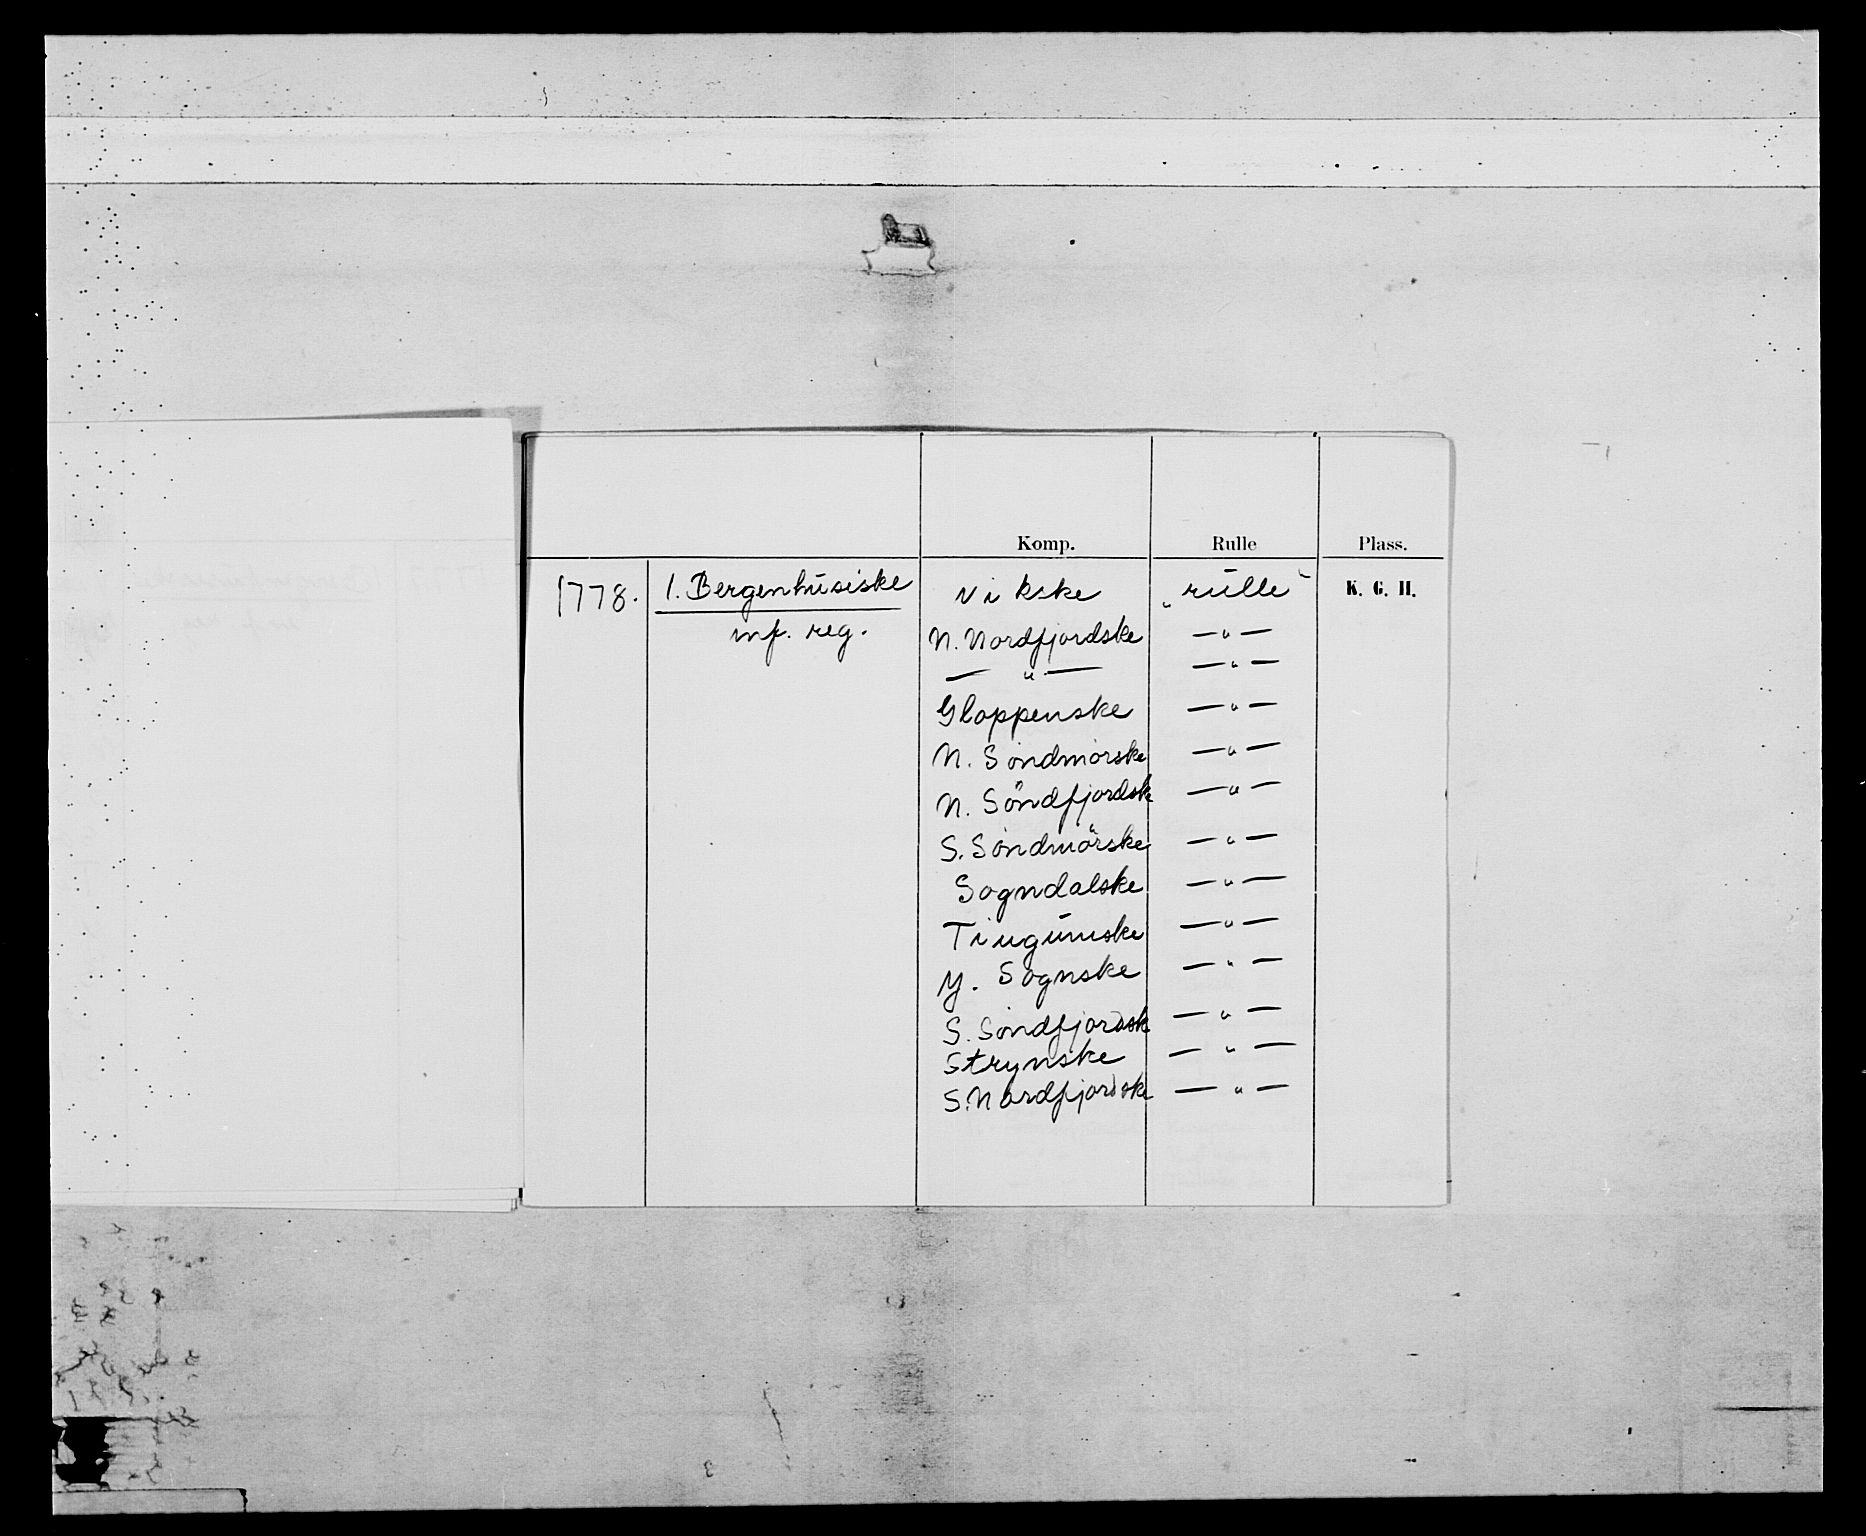 Komp. Rulle Plass.
1778. 1. Bergenhusiske Vikske "rulle" K. G. H.
inf. reg. N. Nordfjordske — " —
— " — — " —
Gloppenske — " —
N. Söndmörske — " —
N. Söndfjordsk — " —
S. Söndmörske — " —
Sogndalske — " —
Tingumske — " —
Y. Sognske — " —
S. Söndfjordsk — " —
Strynske — " —
S. Nordfjordske — " —